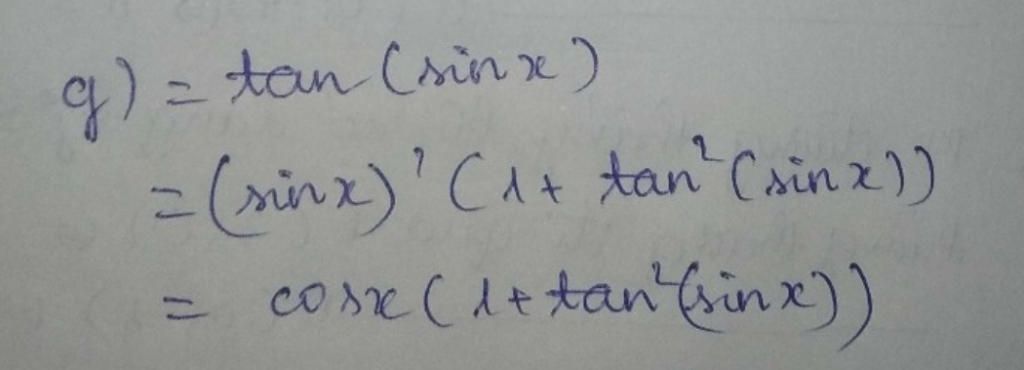 g) = tan (sin x)
= (sin x)' (1 + tan² (sin x))
= cos x (1 + tan² (sin x))